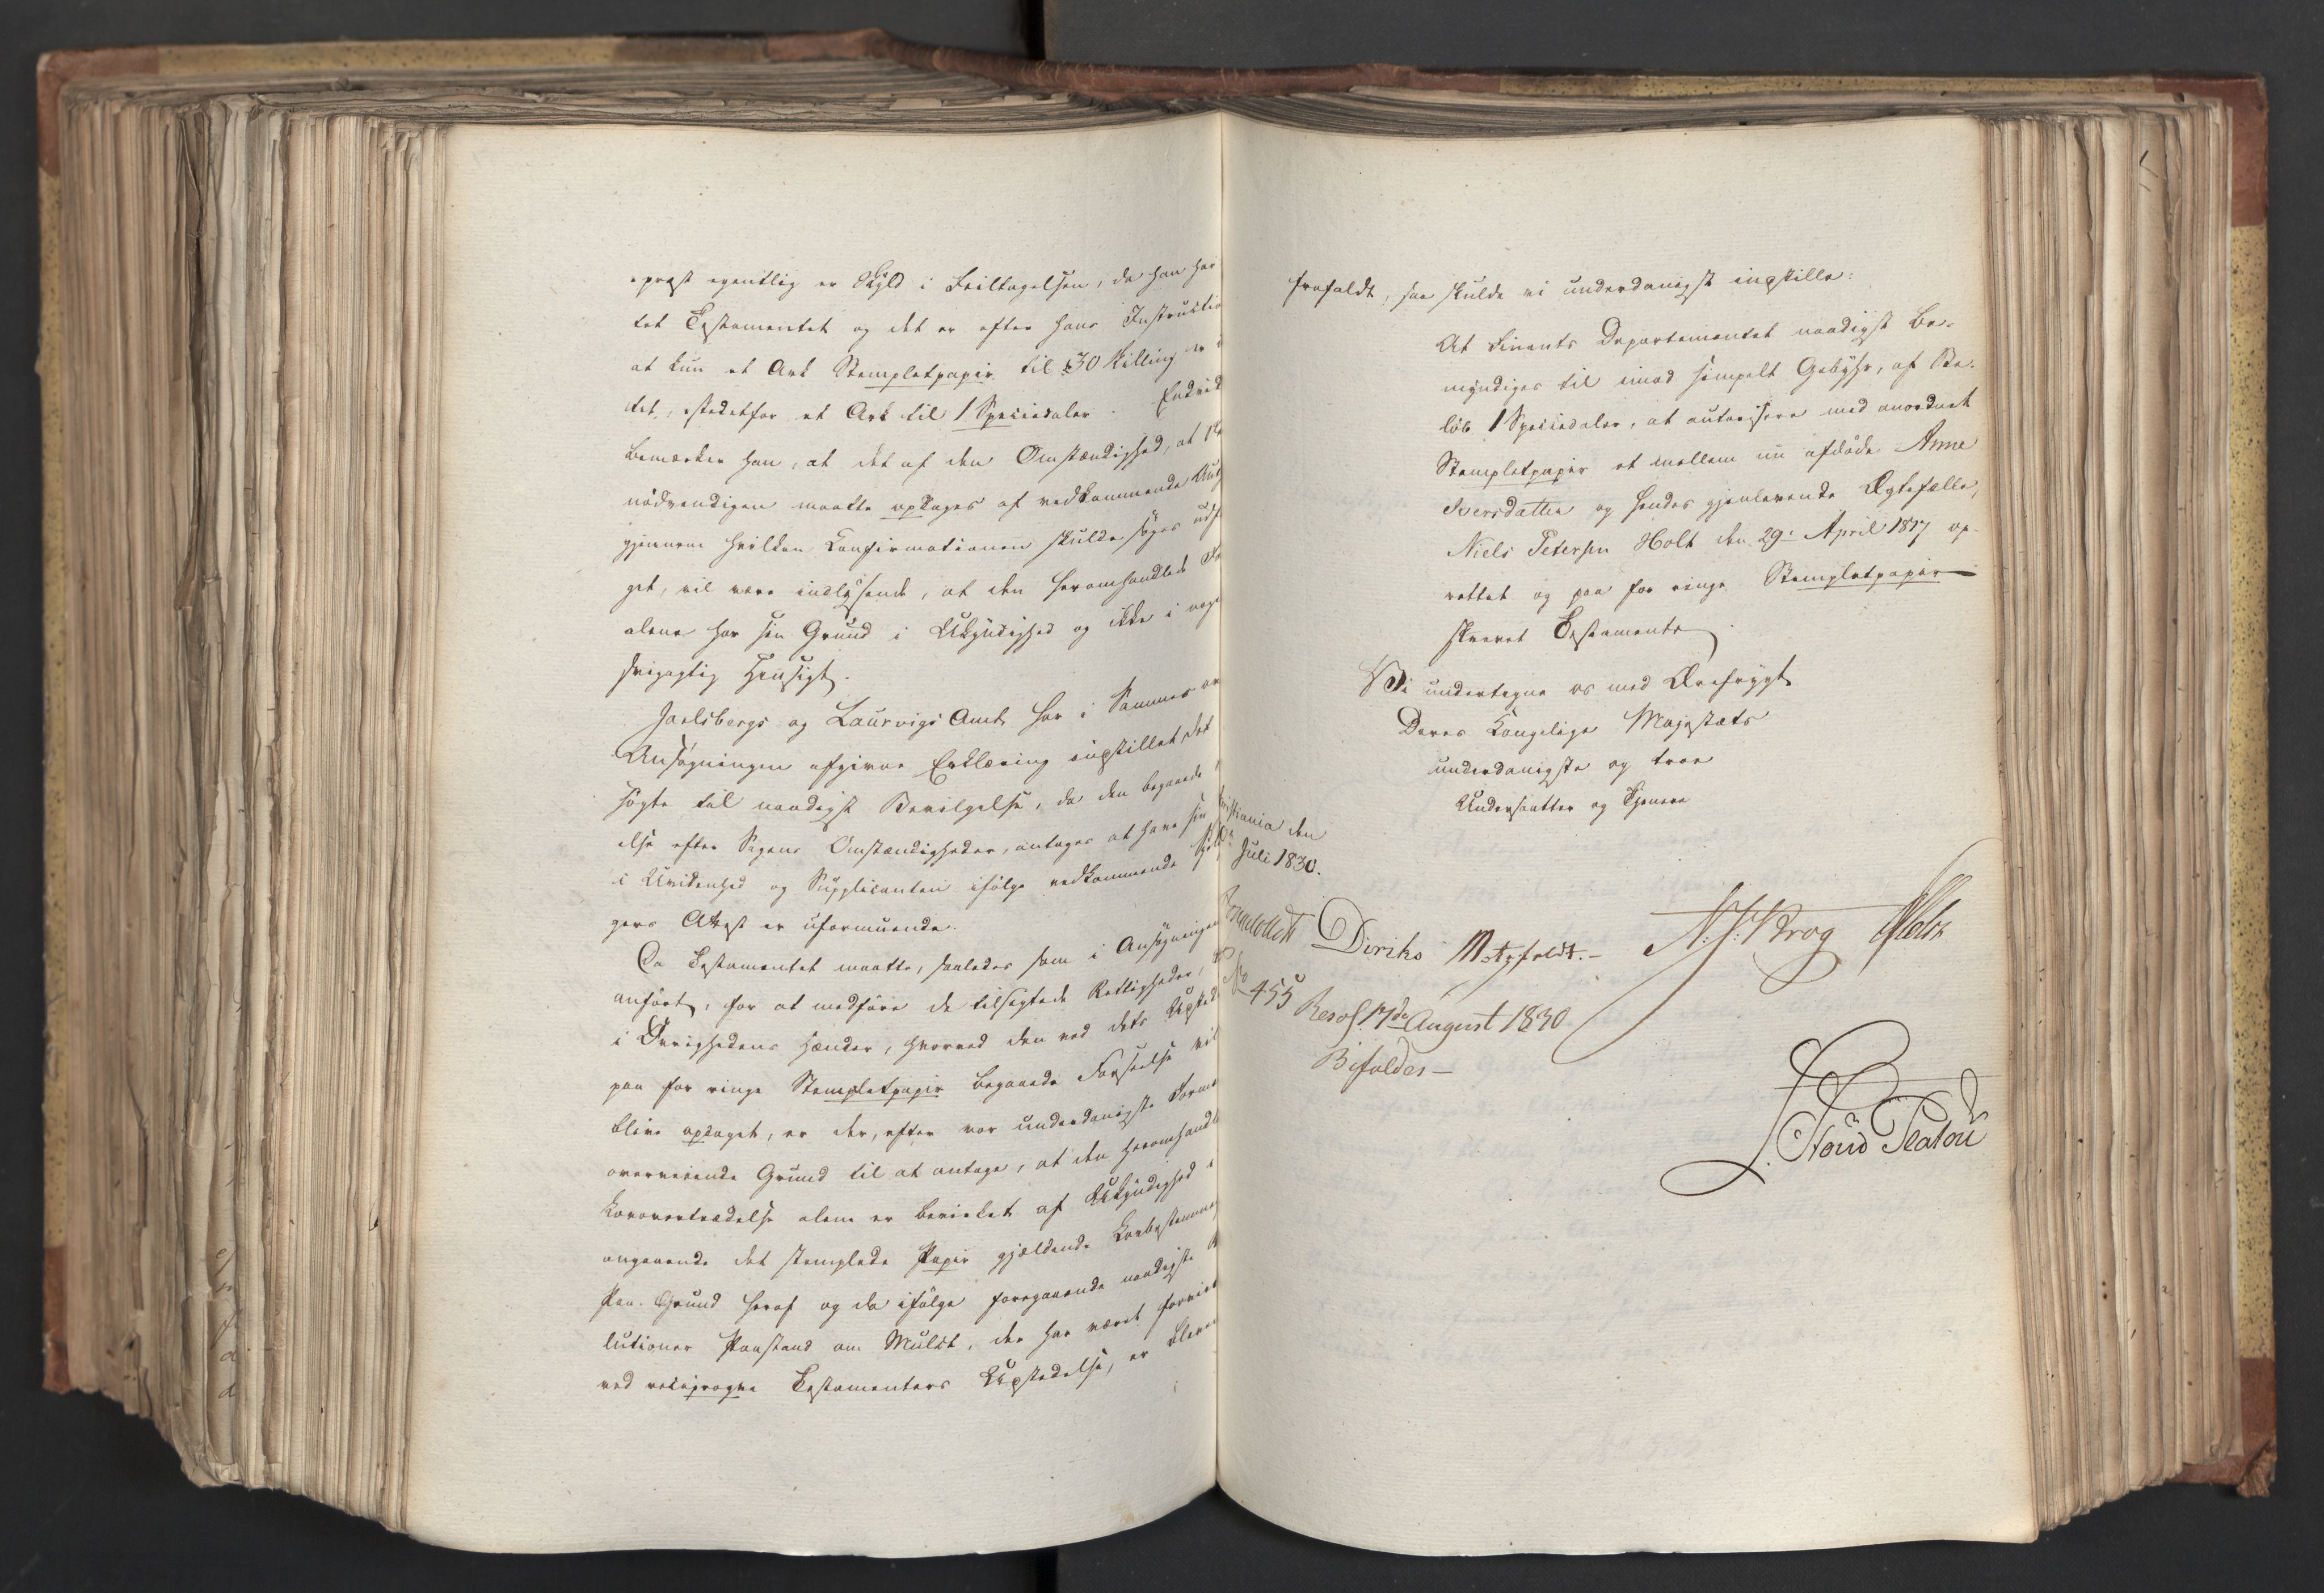 -præst egentlig er Skyld i Feiltagelsen, da han har
tet Testamentet og det er efter hans Instructio
at kun et Ark Stempletpapir til 30 Skilling er
tet, istedetfor et Ark til 1 Speciedaler. Endvid
bemærker han, at det af den Omstændighed, at
nødvendigen maatte opdages af vedkommende
gjennem hvilken Confirmationen skulde søges
get, vil være indlysende, at den heromhandlede
alene har sin Grund i Ukyndighed og ikke i noge
svigagtig Hensigt.
Jarlsbergs og Laurvigs Amt har i Sammes
Ansøgningen afgivne Erklæring indstillet det
søgte til naadigst Bevilgelse, da den begaaede
else efter Sagens Omstændigheder, antages at have sin
i Uvidenhed og Supplicanten ifølge vedkommende
gers Attest er uformuende.
Da Testamentet maatte, saaledes som i Ansøgningen
anført, for at medføre de tilsigtede Rettigheder,
i Øvrighedens Hænder, hvorved den ved dets Udsted
paa for ringe Stempletpapir begaaede Forseelse vil
blive opdaget, er der, efter vor underdanigste Forme
overveiende Grund til at antage, at den heromhandl
Lovovertrædelse alene er bevirket af Ukyndighed
angaaende det stemplede Papir gjældende Lovbestemme
Paa Grund heraf og da ifølge foregaaende naadigste
lutioner Paastand om Mulct, der har været forvirk
ved reciproque Testamenters Udstedelse, er bleven
frafaldt, saa skulde vi underdanigst indstille:
At Finants Departementet naadigst be-
myndiges til imod simpelt Gebyhr, af Be-
løb 1 Speciedaler, at autorisere med anordnet
Stempletpapir et mellem nu afdøde Anne
Iversdatter og hendes gjenlevende Ægtefælle,
Niels Petersen Holt den 29de April 1817 op-
rettet og paa for ringe Stempletpapir
skrevet Testamente.
Vi undertegne os med Ærefrygt
Deres Kongelige Majestæts
underdanigste og troe
Undersaatter og Tjenere
istiania den
Juli 1830.
Diriks Motzfeldt. N. J. Krog
No 455
Resol. 17de August 1830
Bifaldes
Stoud Platou